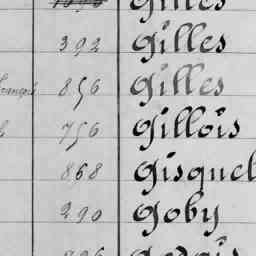 Gilles
392 Gilles
856 Gilles
756 Gillois
868 Gisquel
290 Goby